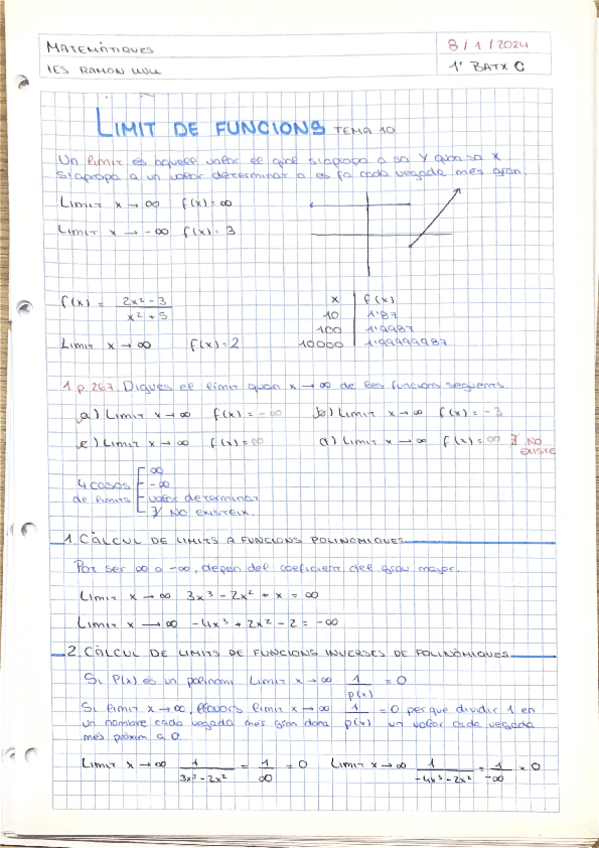 MATEMÀTIQUES 8/1/2024
IES RAMON LLULL 1r BATX C
LIMIT DE FUNCIONS TEMA 10
Un límit és aquell valor el qual s'apropa a sa y quan sa x
s'apropa a un valor determinat o es fa cada vegada més gran.
Limit x→∞ f(x)=∞
Limit x→-∞ f(x)=3
f(x) = 2x²-3 / x²+5
x | f(x)
10 | 1'87
100 | 1'9987
10000 | 1'99999987
Limit x→∞ f(x)=2
1 p.263. Digues el límit quan x→∞ de les funcions següents.
a) Limit x→∞ f(x)=-∞ b) Limit x→∞ f(x)=-3
c) Limit x→∞ f(x)=∞ d) Limit x→∞ f(x)=∞ ∄ NO EXISTE
4 casos de límits
∞
-∞
valor determinat
∄ NO EXISTEIX.
1. CÀLCUL DE LIMITS A FUNCIONS POLINÒMIQUES
Pot ser ∞ o -∞, depèn del coeficient del grau major.
Limit x→∞ 3x³-2x²+x=∞
Limit x→∞ -4x³+2x²-2=-∞
2. CÀLCUL DE LIMITS DE FUNCIONS INVERSES DE POLINÒMIQUES
Si P(x) és un polinomi Limit x→∞ 1/p(x) =0
Si límit x→∞, llavors límit x→∞ 1/p(x) =0 perque dividir 1 en
un nombre cada vegada més gran dona un valor cada vegada
més pròxim a 0.
Limit x→∞ 1/3x³-2x² = 1/∞ =0 Limit x→∞ 1/-4x³-2x² = 1/-∞ =0